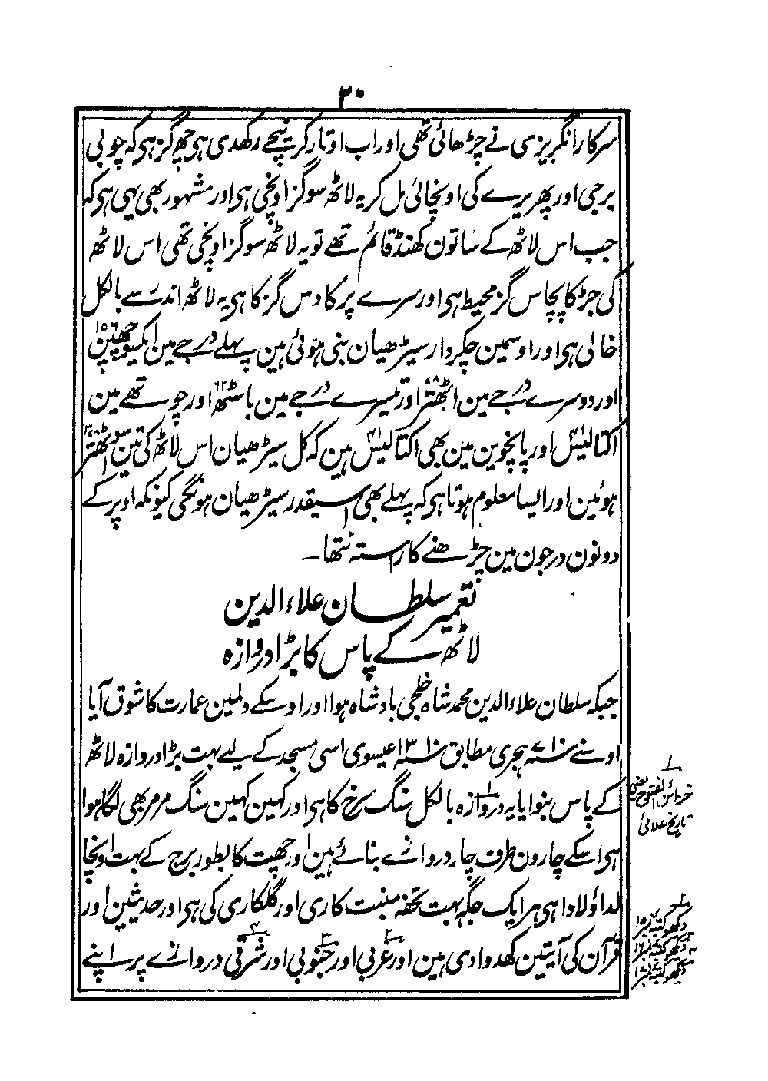 ۳۰
سرکار انگریزی نے چڑھائی تھی اور اب اوتار کر نیچے رکھدی ہی چھہ گز ہی کہ چوبی
برجی اور پھریرے کی اونچائی مل کر یہ لاٹھ سو گز اونچی ہی اور مشہور بھی یہی ہی کہ
جب اس لاٹھ کے ساتون کھنڈ قائم تھے تو یہ لاٹھ سو گز اونچی تھی اس لاٹھ
کی جڑ کا پچاس گز محیط ہی اور سرے پر کا دس گز کا ہی یہ لاٹھ اندر سے بالکل
خالی ہی اور اوسمین چکر دار سیڑھیان بنی ہوئی ہین پہلے درجے مین ایکسو چھپن ۱۵۶
اور دوسرے درجے مین اٹھتر ۷۸ اور تیسرے درجے مین باسٹھ ۶۲ اور چوتھے مین
اکتالیس اور پانچوین مین بھی اکتالیس ہین کہ کل سیڑھیان اس لاٹھ کی تین سو اٹھتر
ہوئین اور ایسا معلوم ہوتا ہی کہ پہلے بھی اسیقدر سیڑھیان ہونگی کیونکہ اوپر کے
دونون درجون مین چڑھنے کا راستہ نتھا۔
تعمیر سلطان علاء الدین
لاٹھ کے پاس کا بڑا دروازہ
جبکہ سلطان علاء الدین محمد شاہ خلجی بادشاہ ہوا اور اوسکے دلمین عمارت کا شوق آیا
اوسنے سنہ ۷۱۰ ہجری مطابق سنہ ۱۳۱۰ عیسوی اسی مسجد کے لیے بہت بڑا دروازہ لاٹھ
کے پاس بنوایا یہ دروازہ بالکل سنگ سرخ کا ہی اور کہین کہین سنگ مرمر بھی لگا ہوا
ہی اسکے چارون طرف چار دروازے بنائے ہین اور چھت کا بطور برج کے بہت اونچا
لداؤ لادا ہی ہر ایک جگہ بہت تحفہ منبت کاری اور گلکاری کی ہی اور حدیثین اور
قرآن کی آیتین کھدوا دی ہین اور غربی ۲ اور جنوبی ۳ اور شرقی ۴ دروازے پر اپنے
۱
خزائن الفتوح
تاریخ علائی
۲
دیکھو کتبہ
۳ دیکھو کتبہ
۴ دیکھو کتبہ